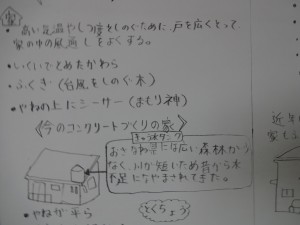 家
高い気温やしつ度をしのぐために、戸を広くとって
家の中の風通しをよくする。
・しっくいでとめたかわら
・ふくぎ(台風をしのぐ木)
・やねの上にシーサー(まもり神)
《今のコンクリートづくりの家》
きゅう水タンク
おきなわ県には広い森林が
なく、川が短いため昔から水
不足になやまされてきた。
・やねが平ら
とくちょう
近年